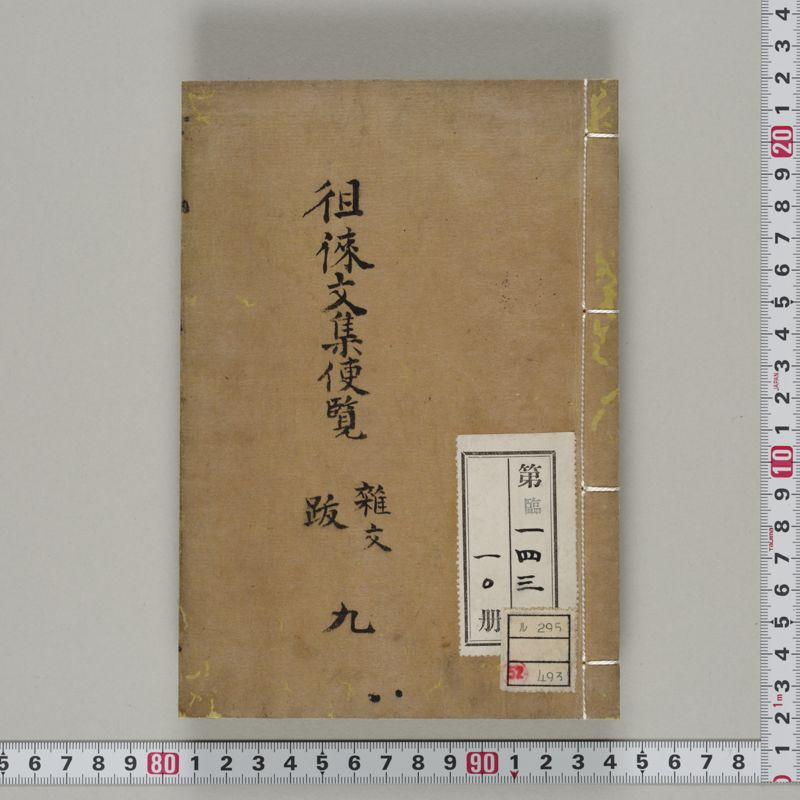 徂徠文集便覧
雜文
跋
九
第臨一四三
一〇册
ル 295
52 493
4
3
2
1
20
9
8
7
6
5
4
3
JAPAN
2
1
10
9
8
7
6
5
4
3
1m
2
1
5 6 7 8 9 80 1 2 3 4 5 6 7 8 9 90 1 2 3 4 5 6 7 8